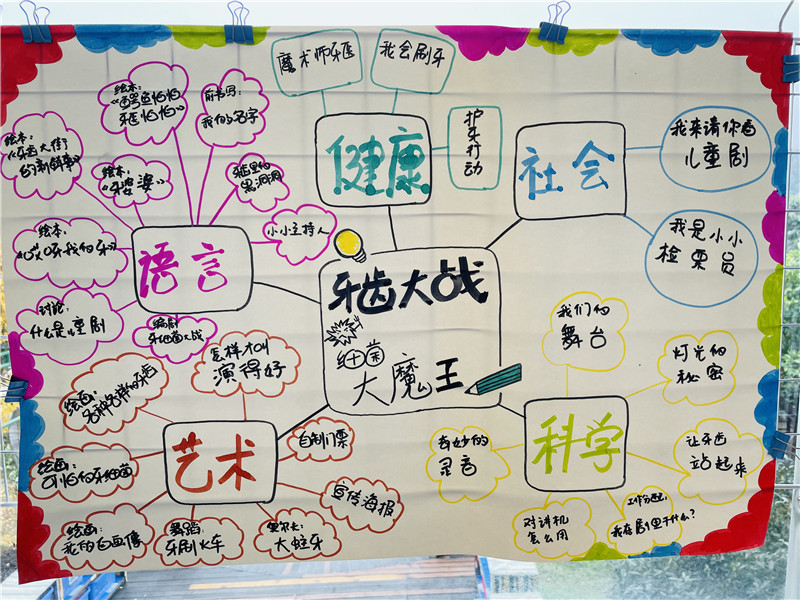 魔术师牙医
我会刷牙
护牙行动
健康
社会
我来请你看
儿童剧
我是小小
检票员
绘本:
《鳄鱼怕怕
牙医怕怕》
前书写:
我的名字
绘本:
《牙齿大街
的新鲜事》
绘本:
《牙婆婆》
牙齿里的
黑洞洞
绘本:
牙我的牙》
小小主持人
讨论:
什么是儿童剧
编剧
牙细菌大战
语言
牙齿大战
细菌
大魔王
绘画:
各种各样的牙齿
怎样才叫
演得好
绘画:
可怕的牙细菌
自制门票
宣传海报
绘画:
我的自画像
舞蹈:
牙刷火车
奥尔夫:
大蛀牙
艺术
我们的
舞台
灯光的
秘密
奇妙的
录音
让牙齿
站起来
对讲机
怎么用
工作分配:
我在剧里干什么?
科学